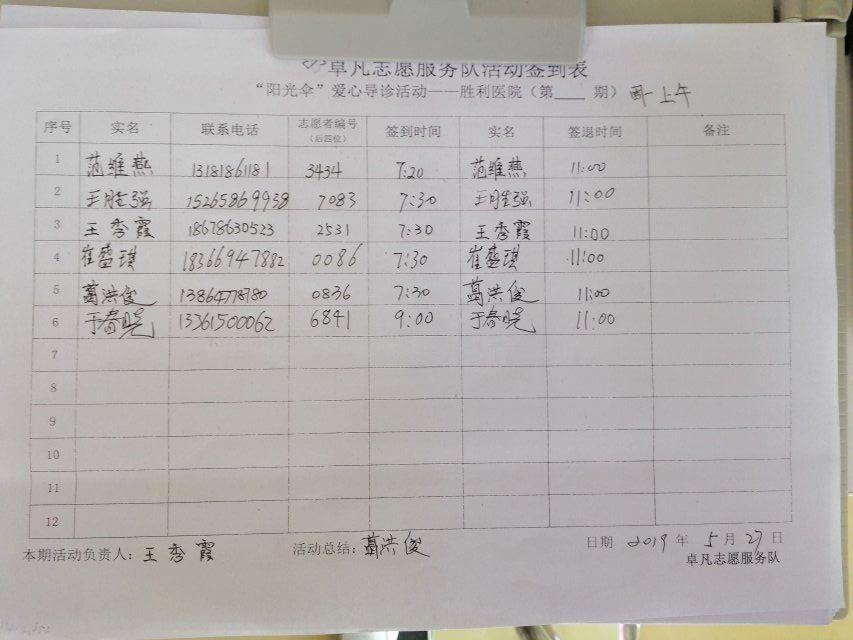 卓凡志愿服务队活动签到表
“阳光伞”爱心导诊活动——胜利医院（第___期）周一上午
序号 实名 联系电话 志愿者编号（后四位） 签到时间 实名 签退时间 备注
1 范维燕 13181861181 3434 7:20 范维燕 11:00
2 王胜强 15265869938 7083 7:30 王胜强 11:00
3 王秀霞 18678630523 2531 7:30 王秀霞 11:00
4 崔盛琪 18366947882 0086 7:30 崔盛琪 11:00
5 葛洪俊 13864778780 0836 7:30 葛洪俊 11:00
6 于春晓 13361500062 6841 9:00 于春晓 11:00
7
8
9
10
11
12
本期活动负责人：王秀霞 活动总结：葛洪俊 日期 2019年5月27日
卓凡志愿服务队